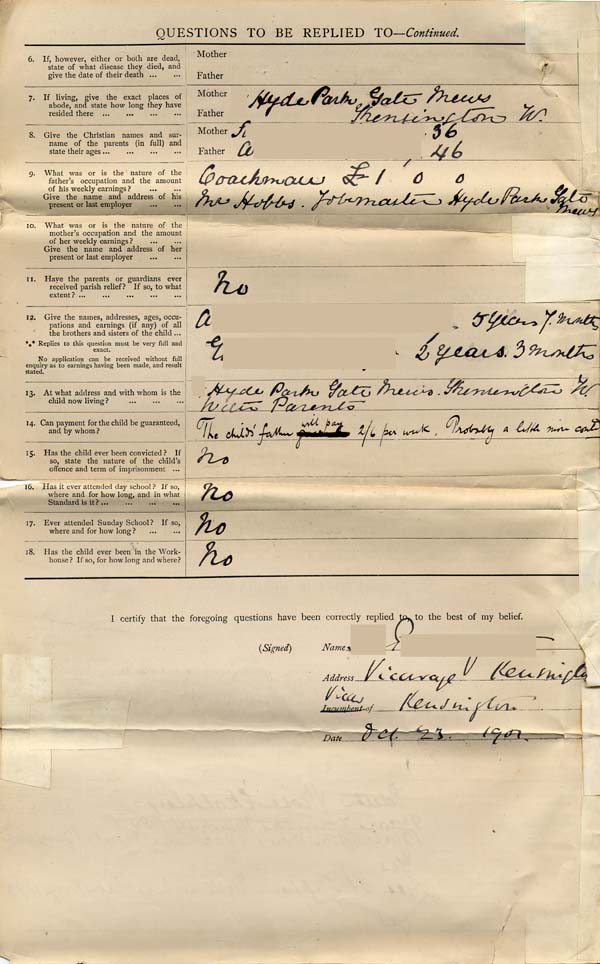 QUESTIONS TO BE REPLIED TO—Continued.
6. If, however, either or both are dead, state of what disease they died, and give the date of their death ... ...
Mother
Father
7. If living, give the exact places of abode, and state how long they have resided there ... ... ...
Mother
Father
Hyde Park Gate Mews
Kensington W.
8. Give the Christian names and surname of the parents (in full) and state their ages ... ... ...
Mother 36
Father A 46
9. What was or is the nature of the father's occupation and the amount of his weekly earnings? ... ...
Give the name and address of his present or last employer ... ...
Coachman £1 0 0
Mr Hobbs. Jobmaster Hyde Park Gate Mews
10. What was or is the nature of the mother's occupation and the amount of her weekly earnings? ... ...
Give the name and address of her present or last employer ... ...
11. Have the parents or guardians ever received parish relief? If so, to what extent? ... ... ... ... ...
No
12. Give the names, addresses, ages, occupations and earnings (if any) of all the brothers and sisters of the child ...
*** Replies to this question must be very full and exact.
No application can be received without full enquiry as to earnings having been made, and result stated.
A 5 Years 7 months
2 years. 3 months
13. At what address and with whom is the child now living? ... ... ...
Hyde Park Gate Mews. Kensington W
With Parents
14. Can payment for the child be guaranteed, and by whom? ... ... ...
The child's father will pay 2/6 per week. Probably a little more
15. Has the child ever been convicted? If so, state the nature of the child's offence and term of imprisonment ...
No
16. Has it ever attended day school? If so, where and for how long, and in what Standard is it? ... ... ... ...
No
17. Ever attended Sunday School? If so, where and for how long? ... ...
No
18. Has the child ever been in the Workhouse? If so, for how long and where?
No
I certify that the foregoing questions have been correctly replied to, to the best of my belief.
(Signed) Name
Address Vicarage Kensington
Vicar
Incumbent of Kensington
Date Oct. 23. 1901